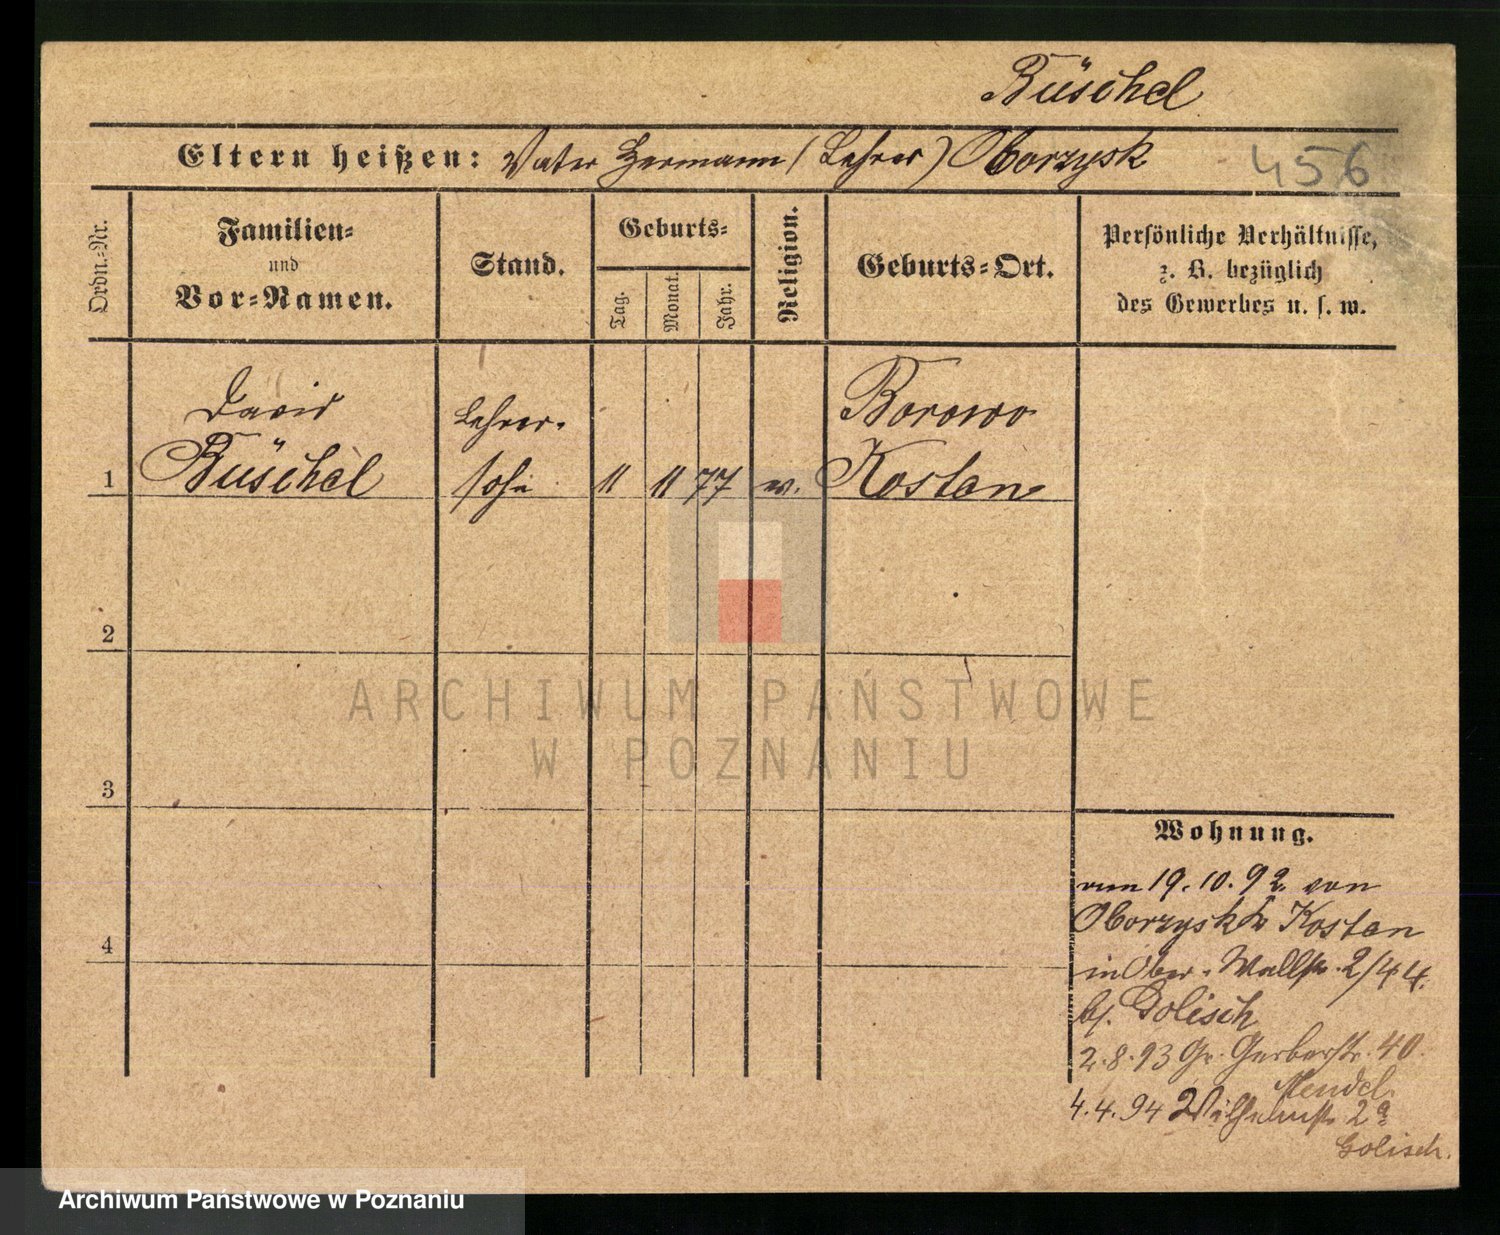 Büschel
Eltern heißen: Vater Hermann (Lehrer) Oborzysk
456
Ordn.-Nr.
Familien-
und
Vor-Namen.
Stand.
Geburts-
Tag.
Monat.
Jahr.
Religion.
Geburts-Ort.
Persönliche Verhältnisse,
z. B. bezüglich
des Gewerbes u. s. w.
David
Büschel
Lehrer-
sohn
Borowo
Kosten
1
11 11 77
2
3
4
ARCHIWUM PAŃSTWOWE
W POZNANIU
Wohnung.
vom 19.10.92. von
Oborzysk Kosten
in Ober-Wallstr. 2/44.
bj. Golisch
2.8.93 Gr. Gerberstr. 40.
Mendel
4.4.94 Wilhelmstr. 2a
Golisch.
Archiwum Państwowe w Poznaniu